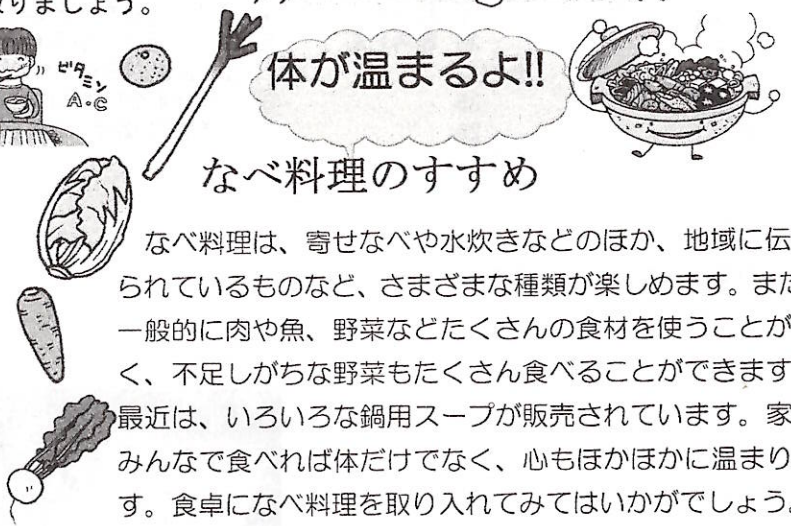 りましょう。
ビタミン
A・C
体が温まるよ!!
なべ料理のすすめ
なべ料理は、寄せなべや水炊きなどのほか、地域に伝
られているものなど、さまざまな種類が楽しめます。また
一般的に肉や魚、野菜などたくさんの食材を使うことが
く、不足しがちな野菜もたくさん食べることができます
最近は、いろいろな鍋用スープが販売されています。家
みんなで食べれば体だけでなく、心もほかほかに温まり
す。食卓になべ料理を取り入れてみてはいかがでしょう。